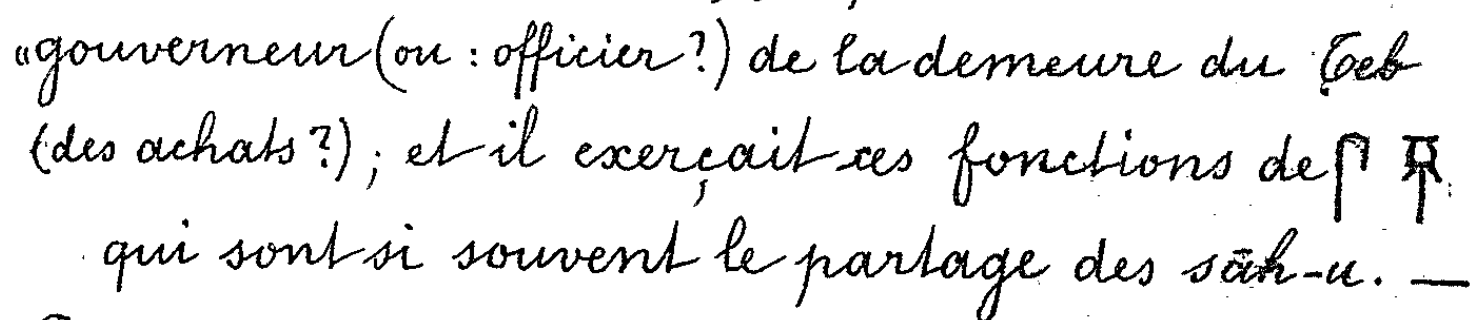 "gouverneur (ou : officier ?) de la demeure du Ṭeb
(des achats ?) ; et il exerçait ces fonctions de 𓋴 𓌂
qui sont si souvent le partage des sāh-u. —